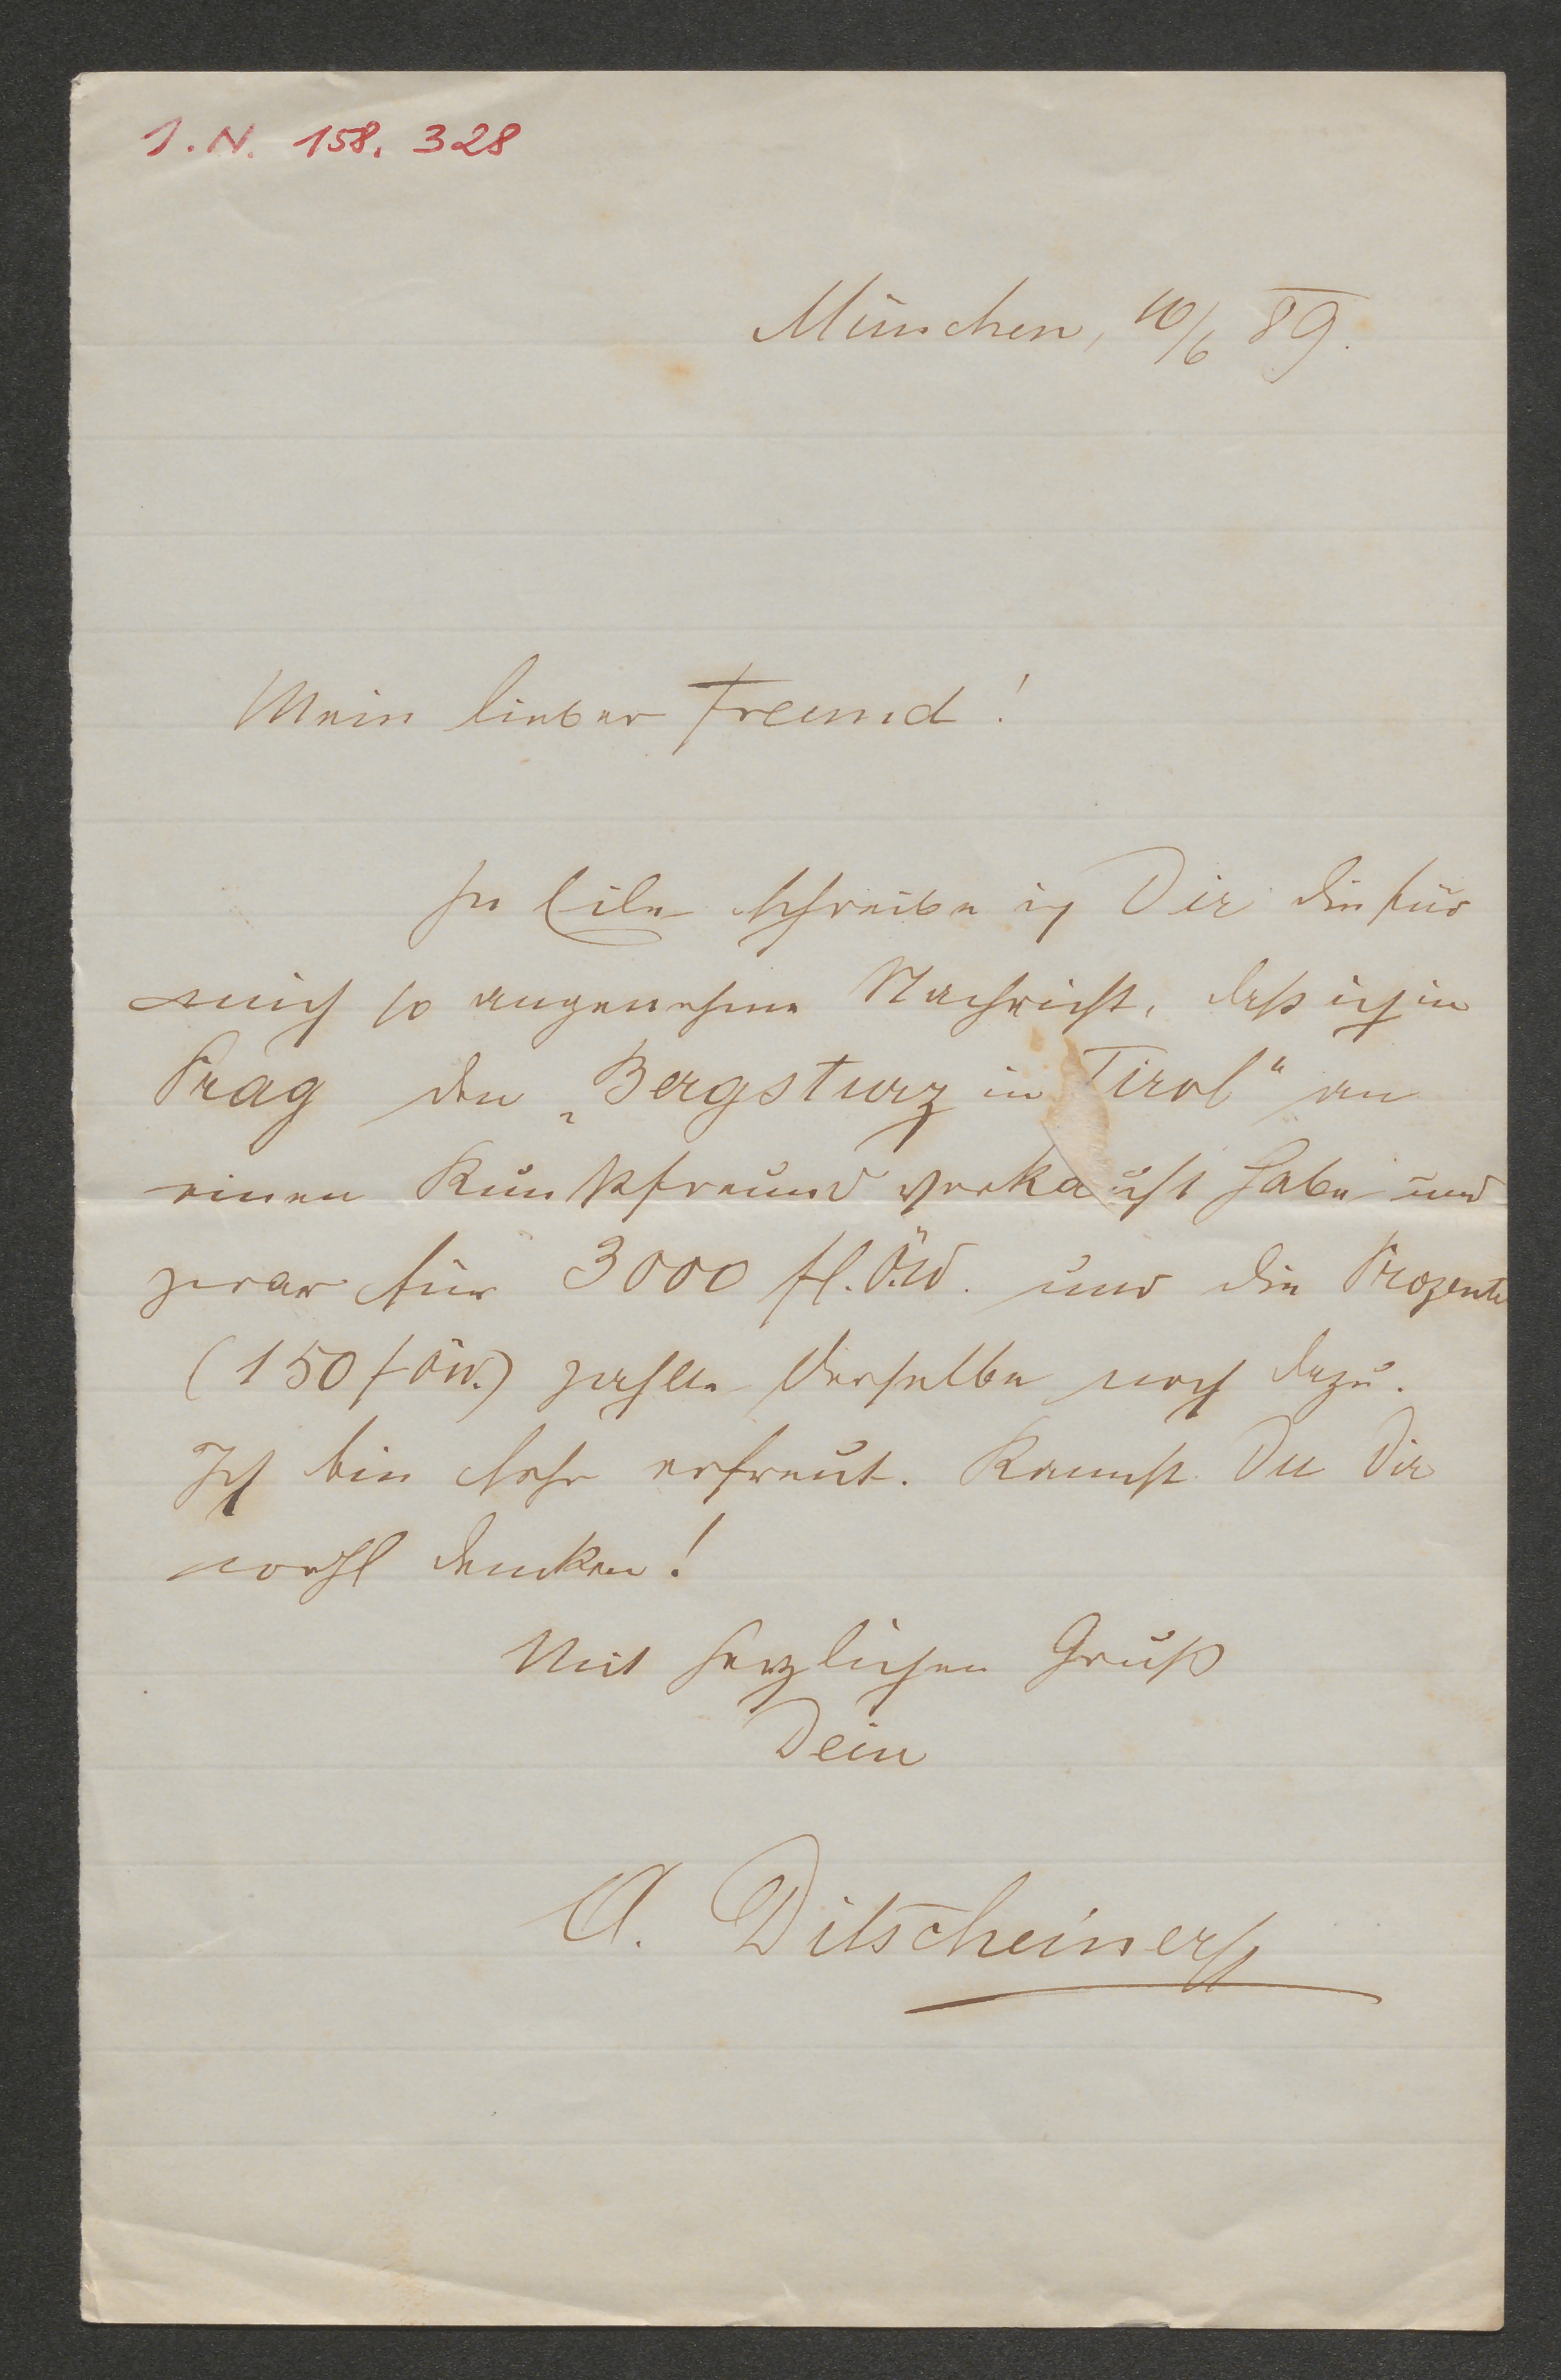 I.N. 158.328
München, 10/6 89.
Mein lieber Freund!
In Eile schreibe ich Dir die für
mich so angenehme Nachricht, daß ich in
Prag den „Bergsturz in Tirol" an
einen Kunstfreund verkauft habe und
zwar für 3000 fl. ÖW. und die Prozente
(150 f öw.) zahlte derselbe noch dazu.
Ich bin sehr erfreut. Kannst Du Dir
wohl denken!
Mit herzlichen Gruß
Dein
A. Ditscheiner